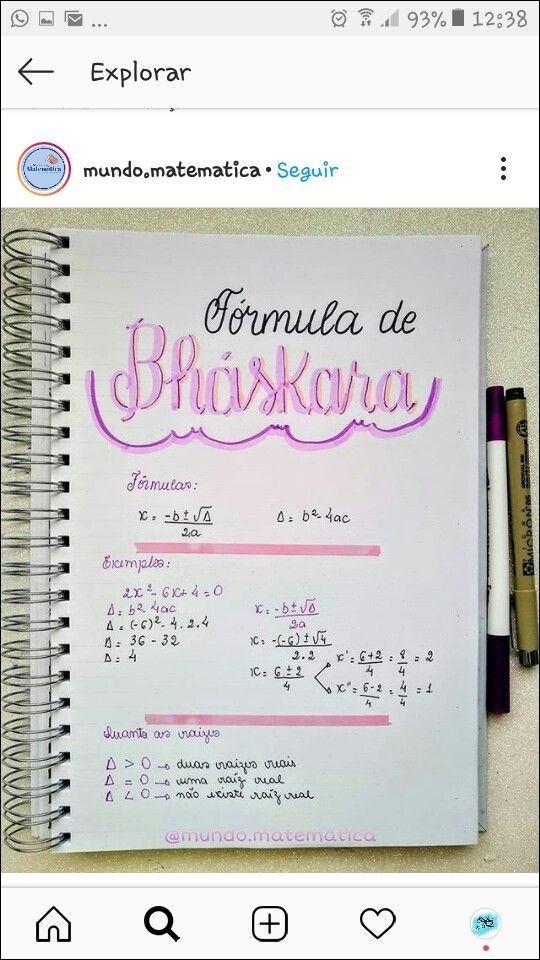 ... 93% 12:38
Explorar
mundo.matematica • Seguir
Matemática
Fórmula de
Bháskara
Fórmulas:
x = -b ± √Δ / 2a    Δ = b² - 4ac
Exemplos:
2x² - 6x + 4 = 0
Δ = b² 4ac
Δ = (-6)² - 4.2.4
Δ = 36 - 32
Δ = 4
x = -b ± √Δ / 2a
x = -(-6) ± √4 / 2.2
x = 6 ± 2 / 4
x' = 6+2 / 4 = 8 / 4 = 2
x" = 6-2 / 4 = 4 / 4 = 1
Quanto as raízes
Δ > 0 → duas raízes reais
Δ = 0 → uma raíz real
Δ < 0 → não existe raíz real
@mundo.matematica
MICRON 05